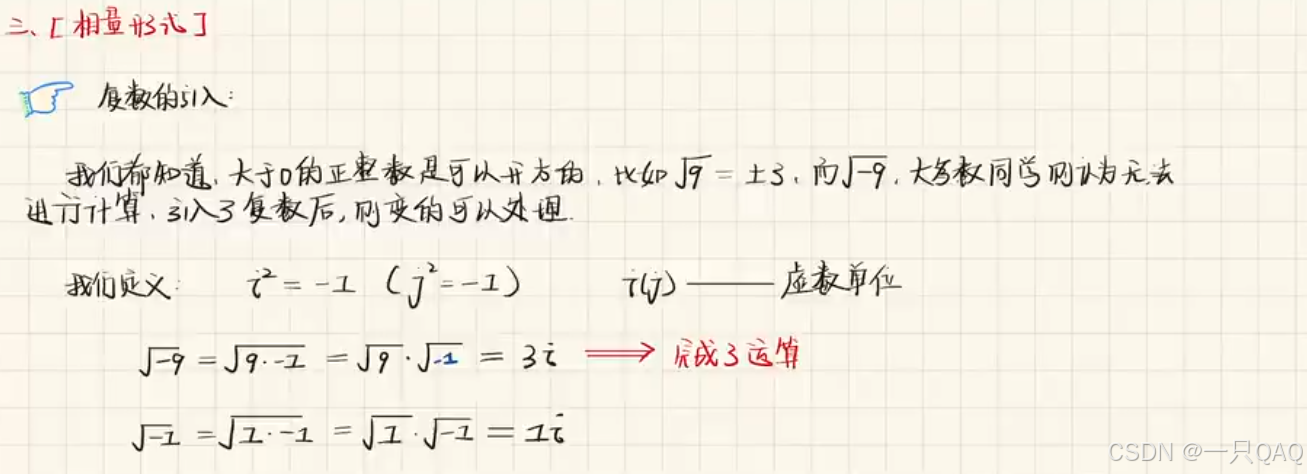 三、[相量形式]
复数的引入:
我们都知道,大于0的正整数是可以开方的,比如√9 = ±3,而√-9,大多数同学则认为无法
进行计算,引入了复数后,则变的可以处理.
我们定义: i² = -1 (j² = -1) i(j) —— 虚数单位
√-9 = √9·-1 = √9·√-1 = 3i ⟹ 完成了运算
√-1 = √1·-1 = √1·√-1 = 1i
CSDN @一只QAQ